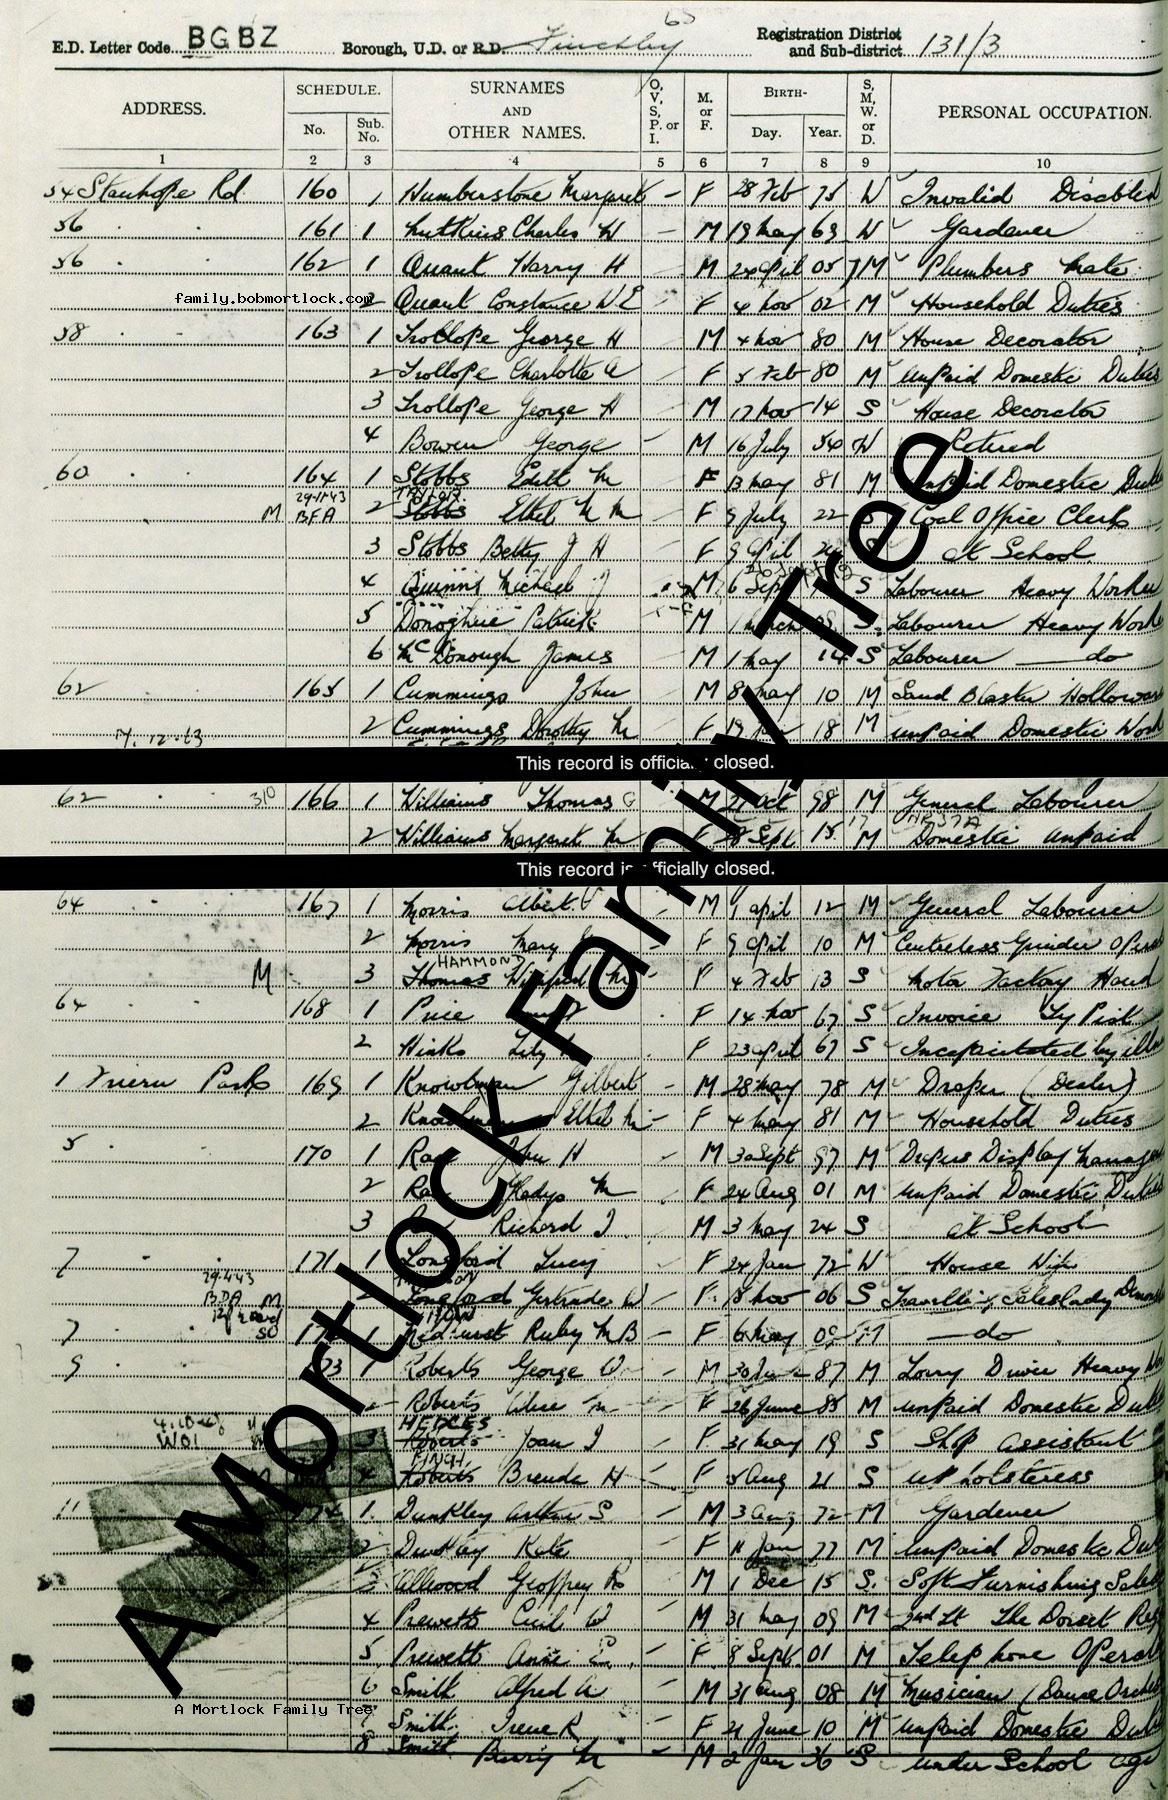 E.D. Letter Code BGBZ Borough, U.D. or R.D. Finchley 65 Registration District and Sub-district 131/3
ADDRESS. SCHEDULE. No. Sub. No. SURNAMES AND OTHER NAMES. O, V, S, P. or I. M. or F. BIRTH- Day. Year. S, M, W. or D. PERSONAL OCCUPATION.
1 2 3 4 5 6 7 8 9 10
54 Stanhope Rd. 160 1 Humberstone Margaret – F 28 Feb 75 W Invalid Disabled
56 161 1 Charles W – M 19 May 69 W Gardener
56 162 1 Quant Harry H – M 24 April 05 M Plumbers Mate
family.bobmortlock.com
2 Quant Constance W E – F 4 Nov 02 M Household Duties
58 163 1 Trollope George H M 4 Nov 80 M House Decorator
2 Trollope Charlotte A – F 5 Feb 80 M Unpaid Domestic Duties
3 Trollope George H M 17 Nov 14 S House Decorator
4 Bowen George – M 16 July 54 W Retired
60 164 1 Stobbs Edith M F 13 May 81 M Unpaid Domestic Duties
M 29-11-43 BFA 2 Stobbs Ethel M M – F 9 July 22 S Coal Office Clerk
3 Stobbs Betty J H F 9 April S at School
4 Quinns Michael J M 6 Sept S Labourer Heavy Worker
5 Donoghue Patrick M 1 March S Labourer Heavy Worke
6 McDonough James M 1 May 14 S Labourer — do
62 165 1 Cummings John M 8 May 10 M Sand Blaster
2 Cummings Dorothy M F 19 Jan 18 M unpaid Domestic Work
This record is officially closed.
62 310 166 1 Williams Thomas G M Oct 98 M General Labourer
2 Williams Margaret M F 8 Sept 15 17 M Domestic unpaid
This record is officially closed.
64 167 1 Morris Albert V M 1 April 12 M General Labourer
2 Morris Mary – F 9 April 10 M Centreless Grinder
HAMMOND
M 3 Thomas Winifred M F 4 Feb 13 S Motor Factory Hand
64 168 1 Price F 14 Nov 67 S Invoice Typist
2 Hinks Lily F 23 April 67 S Incapacitated by
1 Friern Park 169 1 Knowlman Gilbert – M 28 May 78 M Draper (Dealer)
2 Ethel M – F 4 May 81 M Household Duties
5 170 1 John H M Sept 97 M Drapers Display Manager
2 Gladys M F 24 Aug 01 M Unpaid Domestic Duties
3 Richard J M 3 May 24 S at School
7 171 1 Longford Lucy – F 24 Jan 72 W House Wife
29-4-43 BDA M 2 Longford Gertrude W F 18 Nov 06 S Travelling Saleslady
7 1 Ruby M B – F 6 May 09 M — do
9 173 1 Roberts George W – M 87 M Lorry Driver Heavy
2 Roberts Alice M F 26 June 85 M unpaid Domestic Duties
HEDGES
WO1 3 Roberts Joan J F 31 May 19 S Shop Assistant
FINCH
4 Roberts Brenda H – F 5 Aug 21 S upholsteress
11 174 1 Dunkley Arthur S – M 3 Aug 72 M Gardener
2 Dunkley Kate – F 11 Jan 77 M unpaid Domestic Dut
3 Allwood Geoffrey R – M 1 Dec 15 S. Soft Furnishing Sales
4 Prewett Cecil W – M 31 May 09 M 2nd Lt The Dorset Reg
5 Prewett Annie E – F 8 Sept 01 M Telephone Operat
6 Smith Alfred A – M 31 Aug 08 M Musician (Dance Orches
A Mortlock Family Tree
7 Smith Irene R – F 21 June 10 M unpaid Domestic Duti
8 Smith Barry M – M 2 Jan 36 S under School age
A Mortlock Family Tree